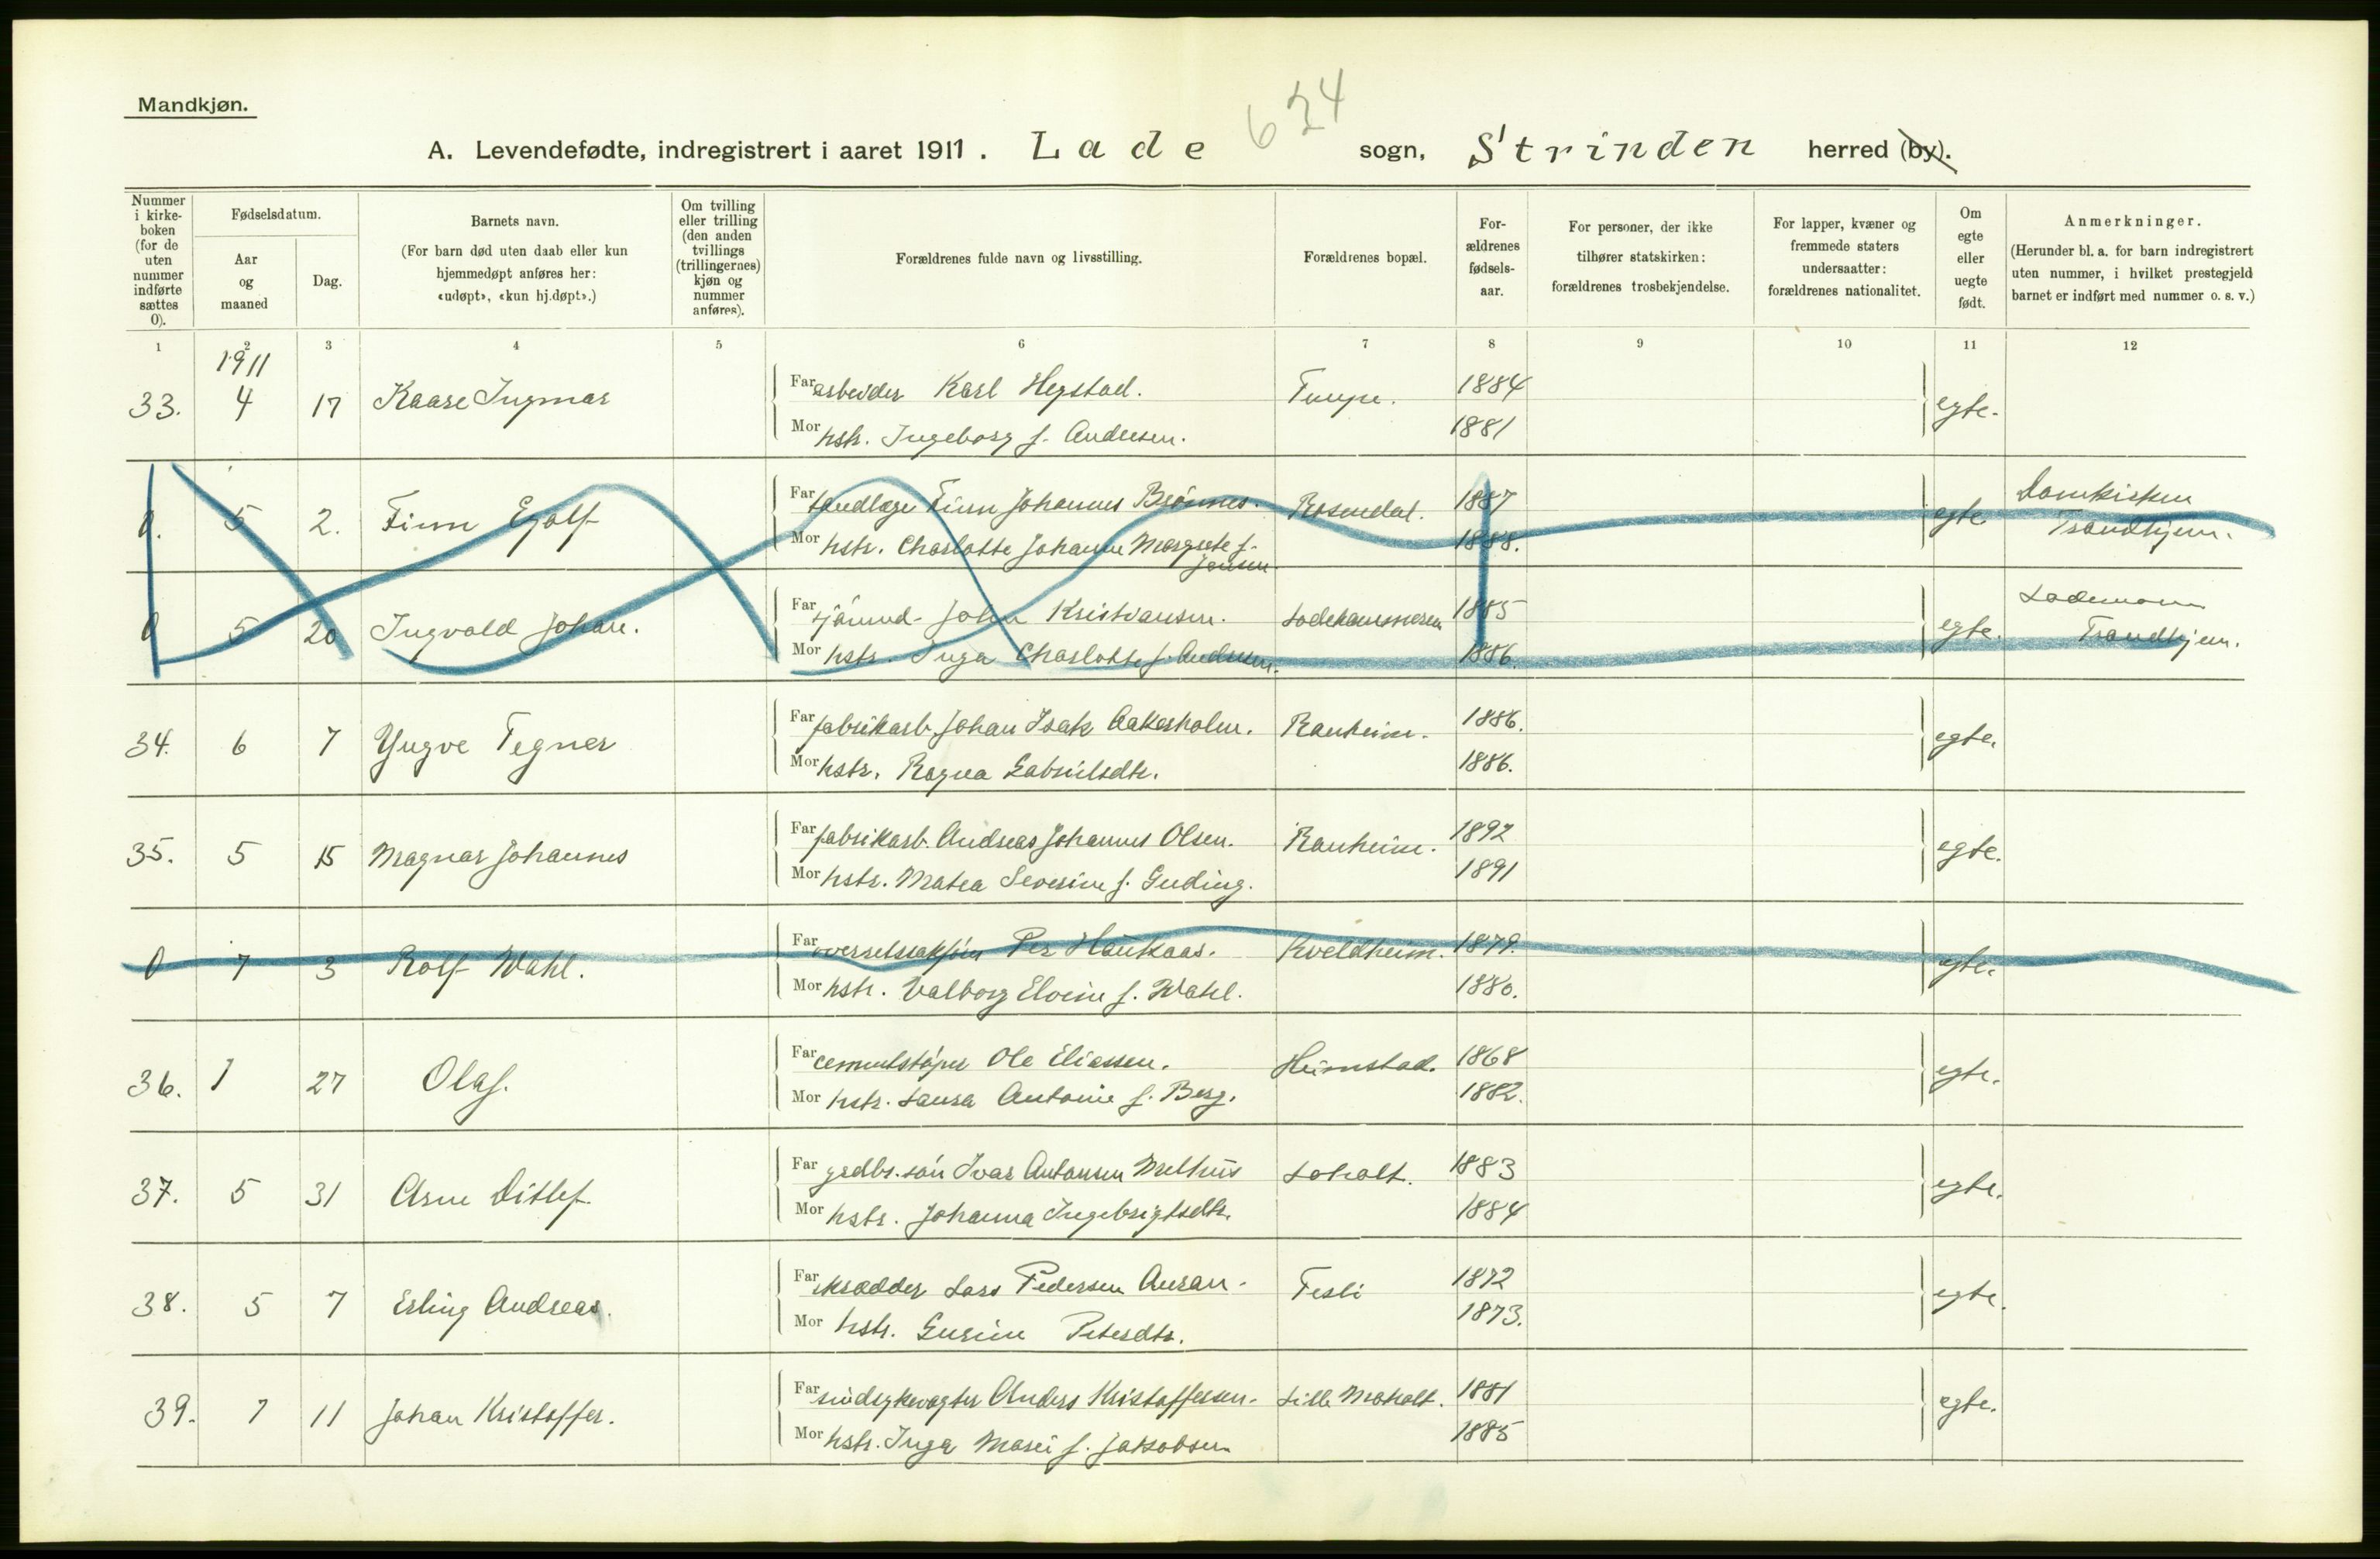 Mandkjøn.
634
A. Levendefødte, indregistrert i aaret 1911. Lade sogn, Strinden herred (by).
Nummer i kirke-boken (for de uten nummer indførte sættes 0).
Fødselsdatum.
Aar og maaned
Dag.
Barnets navn.
(For barn død uten daab eller kun hjemmedøpt anføres her: «udøpt», «kun hj.døpt».)
Om tvilling eller trilling (den anden tvillings (trillingernes) kjøn og nummer anføres).
Forældrenes fulde navn og livsstilling.
Forældrenes bopæl.
For-ældrenes fødsels-aar.
For personer, der ikke tilhører statskirken: forældrenes trosbekjendelse.
For lapper, kvæner og fremmede staters undersaatter: forældrenes nationalitet.
Om egte eller uegte født.
Anmerkninger.
(Herunder bl. a. for barn indregistrert uten nummer, i hvilket prestegjeld barnet er indført med nummer o. s. v.)
1 2 3 4 5 6 7 8 9 10 11 12
1911
33. 4 17 Kaare Ingmar Far arbeider Karl Hegstad. 1884 egte.
Mor hstr. Ingeborg f. Andersen. 1881
0. 5 2. Finn Ejolf Far tandlæge Finn Johannes Brönnes. Rosendal. 1887 egte Domkirken
Mor hstr. Charlotte Johanne Margrete f. Jensen 1888. Trondhjem.
0 5 20 Ingvald Johan. Far sjömand John Kristiansen. Ladehammeren 1885 egte. Lademoen
Mor hstr. Inga Charlotte f. Andersen. 1886. Trondhjem.
34. 6 7 Yngve Tegner Far fabrikarb. Johan Isak Aakerholm. Ranheim. 1886. egte.
Mor hstr. Ragna Gabrielsdtr. 1886.
35. 5 15 Magnar Johannes Far fabrikarb. Andreas Johannes Olsen. Ranheim. 1892 egte.
Mor hstr. Matea Severine f. Guding. 1891
0 7 3 Rolf Wahl. Far overretssakfører Per Haukaas. Kveldheim. 1879. egte.
Mor hstr. Valborg Elvine f. Wahl. 1880.
36. 1 27 Olaf. Far cementstøper Ole Eliassen. Heimstad. 1868 egte.
Mor hstr. Laura Antonie f. Berg. 1882.
37. 5 31 Arne Ditlef Far grdbr. sön Ivar Antonsen Melhus Loholt. 1883 egte.
Mor hstr. Johanna Ingebrigtsdtr. 1884
38. 5 7 Erling Andreas. Far skrædder Lars Pedersen Auran. Tesli 1872 egte.
Mor hstr. Gurine Petersdtr. 1873.
39. 7 11 Johan Kristoffer. Far sindsykevogter Anders Kristoffersen. Lille Moholt. 1881 egte.
Mor hstr. Inga Marie f. Jakobsen 1885